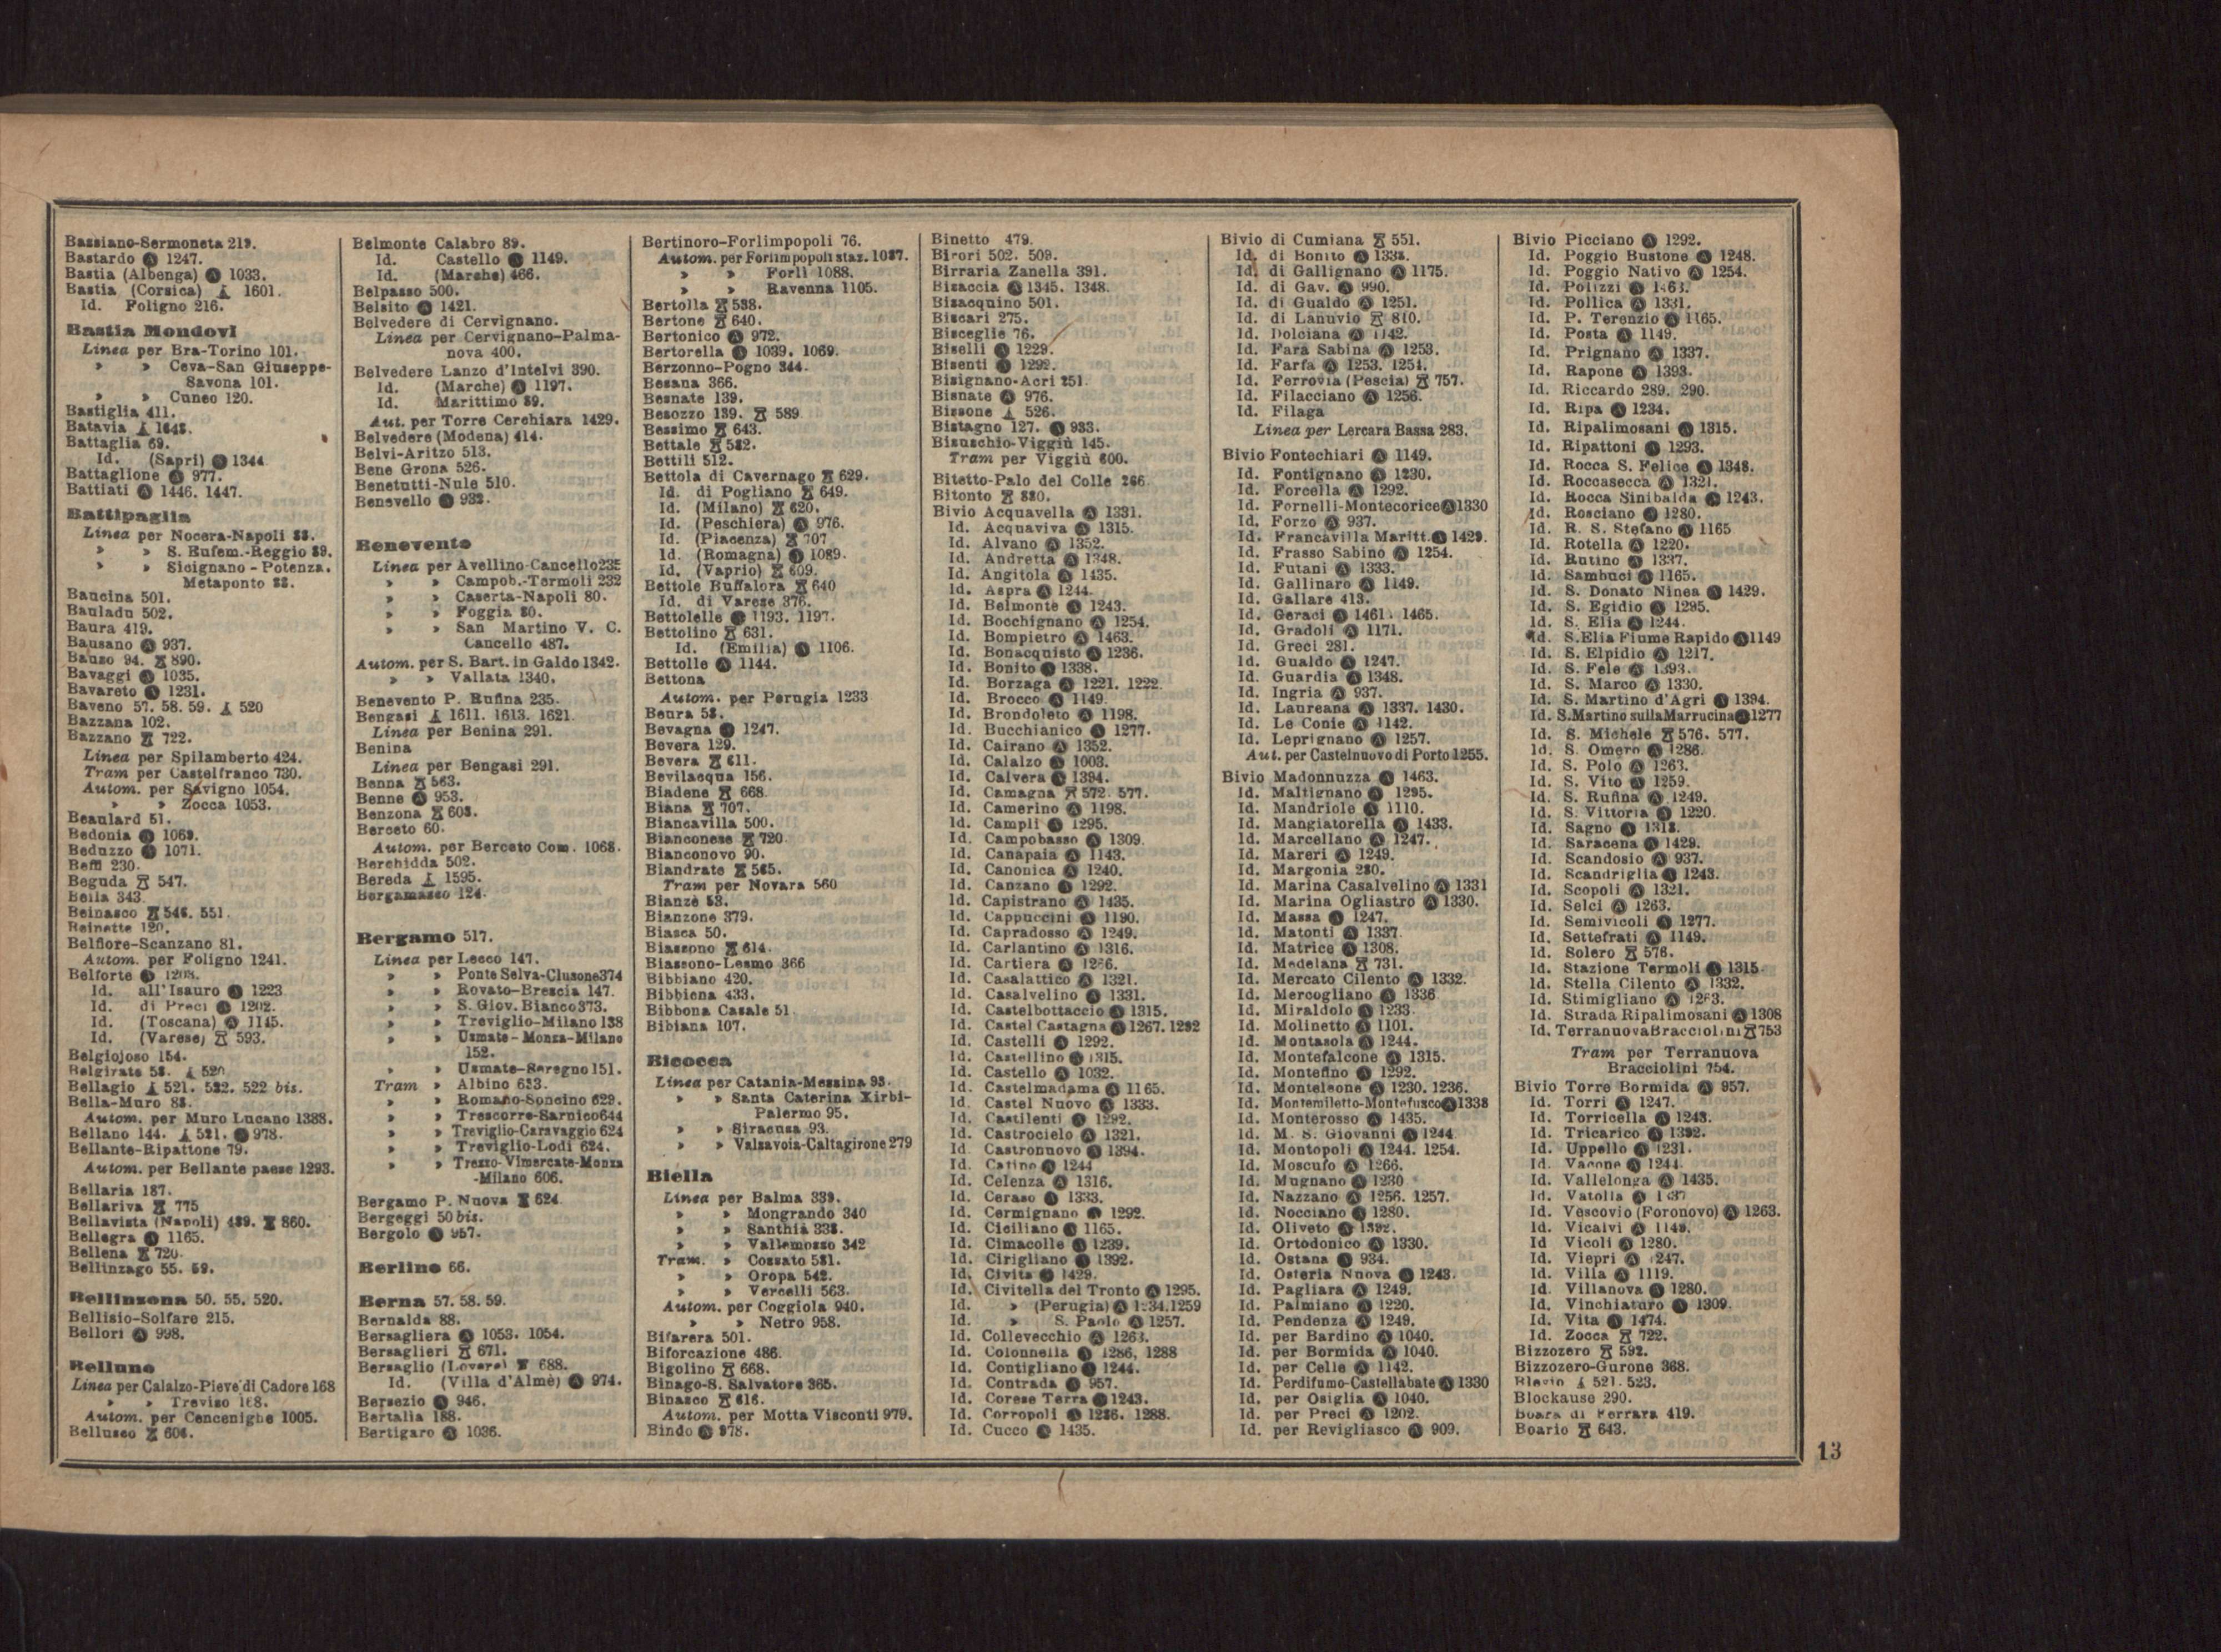 Bassiano-Sermoneta 219.
Bastardo Ⓐ 1247.
Bastia (Albenga) Ⓐ 1033.
Bastia (Corsica) 1601.
Id. Foligno 216.
Bastia Mondovì
Linea per Bra-Torino 101.
» » Ceva-San Giuseppe-
Savona 101.
» » Cuneo 120.
Bastiglia 411.
Batavia 1648.
Battaglia 69.
Id. (Sapri) Ⓐ 1344
Battaglione Ⓐ 977.
Battiati Ⓐ 1446. 1447.
Battipaglia
Linea per Nocera-Napoli 88.
» » S. Eufem.-Reggio 89.
» » Sicignano - Potenza.
Metaponto 88.
Baucina 501.
Bauladu 502.
Baura 419.
Bausano Ⓐ 937.
Bauso 94. 890.
Bavaggi Ⓐ 1035.
Bavareto Ⓐ 1231.
Baveno 57. 58. 59. 520
Bazzana 102.
Bazzano 722.
Linea per Spilamberto 424.
Tram per Castelfranco 730.
Autom. per Savigno 1054.
» » Zocca 1053.
Beaulard 51.
Bedonia Ⓐ 1069.
Beduzzo Ⓐ 1071.
Beffi 230.
Beguda 547.
Beila 343
Beinasco 546. 551
Beinette 120.
Belfiore-Scanzano 81.
Autom. per Foligno 1241.
Belforte Ⓐ 1208.
Id. all'Isauro Ⓐ 1223
Id. di Preci Ⓐ 1202.
Id. (Toscana) Ⓐ 1145.
Id. (Varese) 593.
Belgiojoso 154.
Belgirate 58. 520
Bellagio 521. 522. 522 bis.
Bella-Muro 88.
Autom. per Muro Lucano 1388.
Bellano 144. 521. Ⓐ 978.
Bellante-Ripattone 79.
Autom. per Bellante paese 1293.
Bellaria 187.
Bellariva 775
Bellavista (Napoli) 489. 860.
Bellegra Ⓐ 1165.
Bellena 720.
Bellinzago 55. 59.
Bellinzona 50. 55. 520.
Bellisio-Solfare 215.
Bellori Ⓐ 998.
Belluno
Linea per Calalzo-Pieve di Cadore 168
» » Treviso 168.
Autom. per Cencenighe 1005.
Bellusco 604.
Belmonte Calabro 89.
Id. Castello Ⓐ 1149.
Id. (Marche) 466.
Belpasso 500.
Belsito Ⓐ 1421.
Belvedere di Cervignano.
Linea per Cervignano-Palma-
nova 400.
Belvedere Lanzo d'Intelvi 390.
Id. (Marche) Ⓐ 1197.
Id. Marittimo 89.
Aut. per Torre Cerchiara 1429.
Belvedere (Modena) 414.
Belvi-Aritzo 513.
Bene Grona 526.
Benetutti-Nule 510.
Benevello Ⓐ 933.
Benevento
Linea per Avellino-Cancello 235
» » Campob.-Termoli 232
» » Caserta-Napoli 80.
» » Foggia 80.
» » San Martino V. C.
Cancello 487.
Autom. per S. Bart. in Galdo 1342.
» » Vallata 1340.
Benevento P. Rufina 235.
Bengasi 1611. 1613. 1621.
Linea per Benina 291.
Benina
Linea per Bengasi 291.
Benna 563.
Benne Ⓐ 953.
Benzona 603.
Berceto 60.
Autom. per Berceto Com. 1068.
Berchidda 502.
Bereda 1595.
Bergamasco 124.
Bergamo 517.
Linea per Lecco 147.
» » Ponte Selva-Clusone 374
» » Rovato-Brescia 147.
» » S. Giov. Bianco 373.
» » Treviglio-Milano 138
» » Usmate - Monza-Milano
152.
» » Usmate-Seregno 151.
Tram » Albino 633.
» » Romano-Soncino 629.
» » Trescorre-Sarnico 644
» » Treviglio-Caravaggio 624
» » Treviglio-Lodi 624.
» » Trezzo-Vimercate-Monza
-Milano 606.
Bergamo P. Nuova 624
Bergeggi 50 bis.
Bergolo Ⓐ 957.
Berlino 66.
Berna 57. 58. 59.
Bernalda 88.
Bersagliera Ⓐ 1053. 1054.
Bersaglieri 671.
Bersaglio (Lovere) 688.
Id. (Villa d'Almè) Ⓐ 974.
Bersezio Ⓐ 946.
Bertalia 188.
Bertigaro Ⓐ 1036.
Bertinoro-Forlimpopoli 76.
Autom. per Forlimpopoli staz. 1087.
» » Forlì 1088.
» » Ravenna 1105.
Bertolla 538.
Bertone 640.
Bertonico Ⓐ 972.
Bertorella Ⓐ 1039. 1069.
Berzonno-Pogno 344.
Besana 366.
Besnate 139.
Besozzo 139. 589
Bessimo 643.
Bettale 582.
Bettili 512.
Bettola di Cavernago 629.
Id. di Pogliano 649.
Id. (Milano) 620.
Id. (Peschiera) Ⓐ 976.
Id. (Piacenza) 707
Id. (Romagna) Ⓐ 1089.
Id. (Vaprio) 609.
Bettole Buffalora 640
Id. di Varese 376.
Bettolelle Ⓐ 1193. 1197.
Bettolino 631.
Id. (Emilia) Ⓐ 1106.
Bettolle Ⓐ 1144.
Bettona
Autom. per Perugia 1233
Beura 58.
Bevagna Ⓐ 1247.
Bevera 129.
Bevera 611.
Bevilacqua 156.
Biadene 668
Biana 707.
Biancavilla 500.
Bianconese 720.
Bianconovo 90.
Biandrate 565.
Tram per Novara 560
Bianzè 53.
Bianzone 379.
Biasca 50.
Biassono 614.
Biassono-Lesmo 366
Bibbiano 420.
Bibbiena 433.
Bibbona Casale 51.
Bibiana 107.
Bicocca
Linea per Catania-Messina 93.
» » Santa Caterina Xirbi-
Palermo 95.
» » Siracusa 93.
» » Valsavoia-Caltagirone 279
Biella
Linea per Balma 339.
» » Mongrando 340
» » Santhià 338.
» » Vallemosso 342
Tram. » Cossato 531.
» » Oropa 542.
» » Vercelli 563.
Autom. per Coggiola 940.
» » Netro 958.
Bifarera 501.
Biforcazione 486.
Bigolino 668.
Binago-S. Salvatore 365.
Binasco 616.
Autom. per Motta Visconti 979.
Bindo Ⓐ 978.
Binetto 479.
Birori 502. 509.
Birraria Zanella 391.
Bisaccia Ⓐ 1345. 1348.
Bisacquino 501.
Biscari 275.
Bisceglie 76.
Biselli Ⓐ 1229.
Bisenti Ⓐ 1292.
Bisignano-Acri 251.
Bisnate Ⓐ 976.
Bissone 526.
Bistagno 127. Ⓐ 933.
Bisuschio-Viggiù 145.
Tram per Viggiù 600.
Bitetto-Palo del Colle 266.
Bitonto 880.
Bivio Acquavella Ⓐ 1331.
Id. Acquaviva Ⓐ 1315.
Id. Alvano Ⓐ 1352.
Id. Andretta Ⓐ 1348.
Id. Angitola Ⓐ 1435.
Id. Aspra Ⓐ 1244.
Id. Belmonte Ⓐ 1243.
Id. Bocchignano Ⓐ 1254.
Id. Bompietro Ⓐ 1463.
Id. Bonacquisto Ⓐ 1236.
Id. Bonito Ⓐ 1338.
Id. Borzaga Ⓐ 1221. 1222.
Id. Brocco Ⓐ 1149.
Id. Brondoleto Ⓐ 1198.
Id. Bucchianico Ⓐ 1277.
Id. Cairano Ⓐ 1352.
Id. Calalzo Ⓐ 1003.
Id. Calvera Ⓐ 1394.
Id. Camagna 572. 577.
Id. Camerino Ⓐ 1198.
Id. Campli Ⓐ 1295.
Id. Campobasso Ⓐ 1309.
Id. Canapaia Ⓐ 1143.
Id. Canonica Ⓐ 1240.
Id. Canzano Ⓐ 1292.
Id. Capistrano Ⓐ 1435.
Id. Cappuccini Ⓐ 1190.
Id. Capradosso Ⓐ 1249.
Id. Carlantino Ⓐ 1316.
Id. Cartiera Ⓐ
Id. Casalattico Ⓐ 1321.
Id. Casalvelino Ⓐ 1331.
Id. Castelbottaccio Ⓐ 1315.
Id. Castel Castagna Ⓐ 1267. 1292
Id. Castelli Ⓐ 1292.
Id. Castellino Ⓐ 1315.
Id. Castello Ⓐ 1032.
Id. Castelmadama Ⓐ 1165.
Id. Castel Nuovo Ⓐ 1333.
Id. Castilenti Ⓐ 1292.
Id. Castrocielo Ⓐ 1321.
Id. Castronuovo Ⓐ 1394.
Id. Catino Ⓐ 1244
Id. Celenza Ⓐ 1316.
Id. Ceraso Ⓐ 1333.
Id. Cermignano Ⓐ 1292.
Id. Ciciliano Ⓐ 1165.
Id. Cimacolle Ⓐ 1239.
Id. Cirigliano Ⓐ 1392.
Id. Civita Ⓐ 1429.
Id. Civitella del Tronto Ⓐ 1295.
Id. » (Perugia) Ⓐ 1234. 1259
Id. » S. Paolo Ⓐ 1257.
Id. Collevecchio Ⓐ 1263.
Id. Colonnella Ⓐ 1286, 1288
Id. Contigliano Ⓐ 1244.
Id. Contrada Ⓐ 957.
Id. Corese Terra Ⓐ 1243.
Id. Corropoli Ⓐ 1286. 1288.
Id. Cucco Ⓐ 1435.
Bivio di Cumiana 551.
Id. di Bonito Ⓐ 1338.
Id. di Gallignano Ⓐ 1175.
Id. di Gav. Ⓐ 990.
Id. di Gualdo Ⓐ 1251.
Id. di Lanuvio 810.
Id. Dolciana Ⓐ 1142.
Id. Fara Sabina Ⓐ 1253.
Id. Farfa Ⓐ 1253. 1254.
Id. Ferrovia (Pescia) 757.
Id. Filacciano Ⓐ 1256.
Id. Filaga
Linea per Lercara Bassa 283.
Bivio Fontechiari Ⓐ 1149.
Id. Fontignano Ⓐ 1230.
Id. Forcella Ⓐ 1292.
Id. Fornelli-Montecorice Ⓐ 1330
Id. Forzo Ⓐ 937.
Id. Francavilla Maritt. Ⓐ 1429.
Id. Frasso Sabino Ⓐ 1254.
Id. Futani Ⓐ 1333.
Id. Gallinaro Ⓐ 1149.
Id. Gallare 413.
Id. Geraci Ⓐ 1461. 1465.
Id. Gradoli Ⓐ 1171.
Id. Greci 281.
Id. Gualdo Ⓐ 1247.
Id. Guardia Ⓐ 1348.
Id. Ingria Ⓐ 937.
Id. Laureana Ⓐ 1337. 1430.
Id. Le Conie Ⓐ 1142.
Id. Leprignano Ⓐ 1257.
Aut. per Castelnuovo di Porto 1255.
Bivio Madonnuzza Ⓐ 1463.
Id. Maltignano Ⓐ 1295.
Id. Mandriole Ⓐ 1110.
Id. Mangiatorella Ⓐ 1433.
Id. Marcellano Ⓐ 1247.
Id. Mareri Ⓐ 1249.
Id. Margonia 280.
Id. Marina Casalvelino Ⓐ 1331
Id. Marina Ogliastro Ⓐ 1330.
Id. Massa Ⓐ 1247.
Id. Matonti Ⓐ 1337
Id. Matrice Ⓐ 1308.
Id. Medelana 731.
Id. Mercato Cilento Ⓐ 1332.
Id. Mercogliano Ⓐ 1336
Id. Miraldolo Ⓐ 1233.
Id. Molinetto Ⓐ 1101.
Id. Montasola Ⓐ 1244.
Id. Montefalcone Ⓐ 1315.
Id. Montefino Ⓐ 1292.
Id. Monteleone Ⓐ 1230. 1236.
Id. Montemiletto-Montefusco Ⓐ 1338
Id. Monterosso Ⓐ 1435.
Id. M. S. Giovanni Ⓐ 1244
Id. Montopoli Ⓐ 1244. 1254.
Id. Moscufo Ⓐ 1266.
Id. Mugnano Ⓐ 1230
Id. Nazzano Ⓐ 1256. 1257.
Id. Nocciano Ⓐ 1280.
Id. Oliveto Ⓐ 1392.
Id. Ortodonico Ⓐ 1330.
Id. Ostana Ⓐ 934.
Id. Osteria Nuova Ⓐ 1243.
Id. Pagliara Ⓐ 1249.
Id. Palmiano Ⓐ 1220.
Id. Pendenza Ⓐ 1249.
Id. per Bardino Ⓐ 1040.
Id. per Bormida Ⓐ 1040.
Id. per Celle Ⓐ 1142.
Id. Perdifumo-Castellabate Ⓐ 1330
Id. per Osiglia Ⓐ 1040.
Id. per Preci Ⓐ 1202.
Id. per Revigliasco Ⓐ 909.
Bivio Picciano Ⓐ 1292.
Id. Poggio Bustone Ⓐ 1248.
Id. Poggio Nativo Ⓐ 1254.
Id. Polizzi Ⓐ 1463.
Id. Pollica Ⓐ 1331.
Id. P. Terenzio Ⓐ 1165.
Id. Posta Ⓐ 1149.
Id. Prignano Ⓐ 1337.
Id. Rapone Ⓐ 1393.
Id. Riccardo 289. 290.
Id. Ripa Ⓐ 1234.
Id. Ripalimosani Ⓐ 1315.
Id. Ripattoni Ⓐ 1293.
Id. Rocca S. Felice Ⓐ 1348.
Id. Roccasecca Ⓐ 1321.
Id. Rocca Sinibalda Ⓐ 1243.
Id. Rosciano Ⓐ 1280.
Id. R. S. Stefano Ⓐ 1165
Id. Rotella Ⓐ 1220.
Id. Rutino Ⓐ 1337.
Id. Sambuci Ⓐ 1165.
Id. S. Donato Ninea Ⓐ 1429.
Id. S. Egidio Ⓐ 1295.
Id. S. Elia Ⓐ 1244.
Id. S. Elia Fiume Rapido Ⓐ 1149
Id. S. Elpidio Ⓐ 1217.
Id. S. Fele Ⓐ 1393.
Id. S. Marco Ⓐ 1330.
Id. S. Martino d'Agri Ⓐ 1394.
Id. S. Martino sulla Marrucina Ⓐ 1277
Id. S. Michele 576. 577.
Id. S. Omero Ⓐ 1286.
Id. S. Polo Ⓐ 1263.
Id. S. Vito Ⓐ 1259.
Id. S. Rufina Ⓐ 1249.
Id. S. Vittoria Ⓐ 1220.
Id. Sagno Ⓐ 1318.
Id. Saracena Ⓐ 1429.
Id. Scandosio Ⓐ 937.
Id. Scandriglia Ⓐ 1243.
Id. Scopoli Ⓐ 1321.
Id. Selci Ⓐ 1263.
Id. Semivicoli Ⓐ 1277.
Id. Settefrati Ⓐ 1149.
Id. Solero 576.
Id. Stazione Termoli Ⓐ 1315.
Id. Stella Cilento Ⓐ 1332.
Id. Stimigliano Ⓐ 1263.
Id. Strada Ripalimosani Ⓐ 1308
Id. Terranuova Bracciolini 753
Tram per Terranuova
Bracciolini 754.
Bivio Torre Bormida Ⓐ 957.
Id. Torri Ⓐ 1247.
Id. Torricella Ⓐ 1243.
Id. Tricarico Ⓐ 1392.
Id. Uppello Ⓐ 1231.
Id. Vacone Ⓐ 1244.
Id. Vallelonga Ⓐ 1435.
Id. Vatolla Ⓐ 1337
Id. Vescovio (Foronovo) Ⓐ 1263.
Id. Vicalvi Ⓐ 1149.
Id Vicoli Ⓐ 1280.
Id. Viepri Ⓐ 1247.
Id. Villa Ⓐ 1119.
Id. Villanova Ⓐ 1280.
Id. Vinchiaturo Ⓐ 1309.
Id. Vita Ⓐ 1474.
Id. Zocca 722.
Bizzozero 592.
Bizzozero-Gurone 368.
Blevio 521. 523.
Blockause 290.
Boara di Ferrara 419.
Boario 643.
13